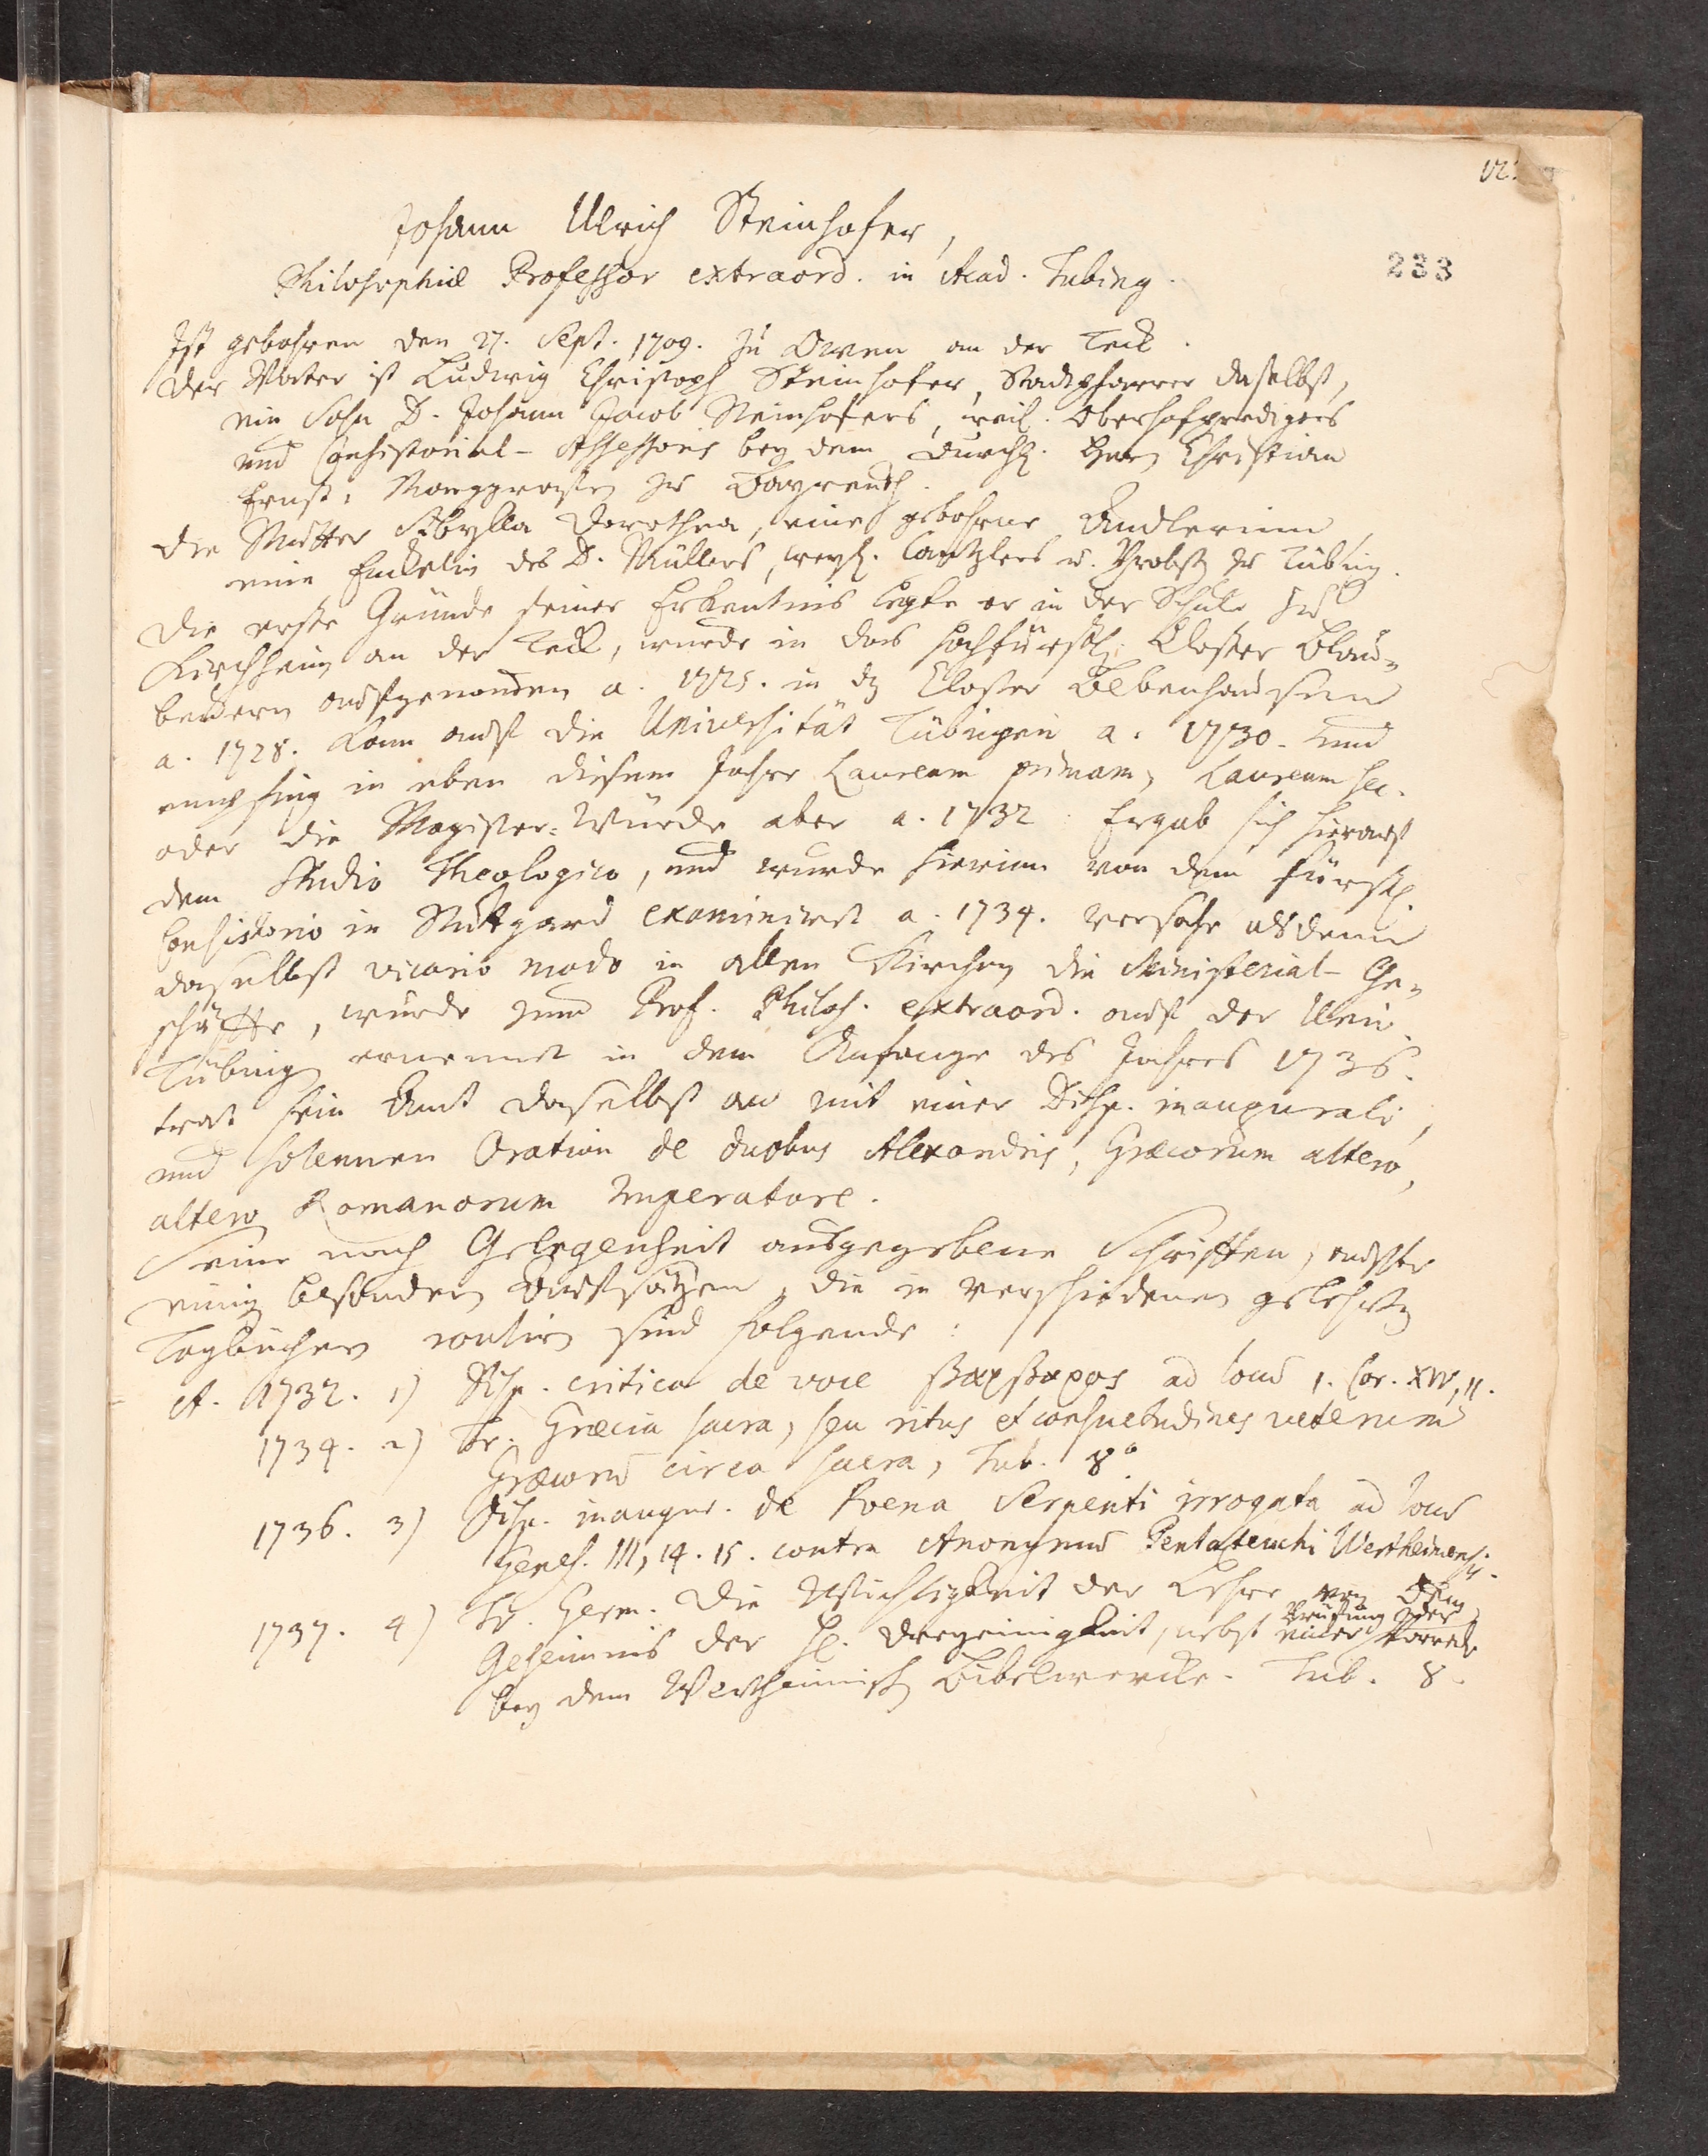 233
Johann Ulrich Steinhofer,
Philosophiæ Professor extraord. in Acad. Tubing.
Ist gebohren den 27. Sept. 1709. zu Owen an der Teck.
der Vater ist Ludwig Christoph Steinhofer, Stadtpfarrer daselbst,
ein Sohn D. Johann Jacob Steinhofers, weil. Oberhofpredigers
und Consistorial-Assessoris bey dem Durchl. Herrn Christian
Ernst, Marggrafen zu Bayreuth.
Die Mutter Sibylla Dorothea, eine gebohrne Andlerinn
eine Enckelin des D. Müllers, weyl. Cantzlers u. Probsts zu Tübing.
Die erste Gründe seiner Erkentnis legte er in der Schule zu
Kirchheim an der Teck, wurde in das hochfürstl. Closter Blau-
beuern aufgenommen a. 1725. in das Closter Bebenhausen
a. 1728. kam auf die Universität Tübingen a. 1730. und
empfing in eben diesem Jahre Lauream primam, Lauream sec.
oder die Magister-Würde aber a. 1732. Ergab sich hierauf
dem Studio Theologico, und wurde hierinn von dem fürstl.
Consistorio in Stuttgard examinirt a. 1734. versahe alsdenn
daselbst vicario modo in allen Kirchen die Ministerial-Ge-
schäffte, wurde zum Prof. Philos. extraord. auf der Univ.
Tübing. ernennet in dem Anfange des Jahres 1736.
trat sein Amt daselbst an mit einer Disp. inaugurali,
und solennen Oration de duobus Alexandris, Græcorum altero,
altero Romanorum Imperatore.
Seine nach Gelegenheit ausgegebene Schrifften, ausser
einig besondern Aufsätzen, die in verschiedenen gelehrten
Tagbücher roulirn sind folgende:
A. 1732. 1) Disp. critica de voce βαρβαρος ad locum 1. Cor. XIV, 11.
1734. 2) Tr. Græcia sacra, seu ritus et consuetudines veterum
Græcorum circa sacra, Tub. 8°
1736. 3) Disp. inaugur. de Poena Serpenti irrogata ad locum
Genes. III, 14. 15. contra Anonymum Pentateuchi Wertheimens.
1737. 4) Tr. Germ. Die Wichtigkeit der Lehre von dem
Geheimnis der H. Dreyeinigkeit, nebst einer Prüfung der Vorrede
bey dem Wertheimisch Bibelwercke. Tub. 8.